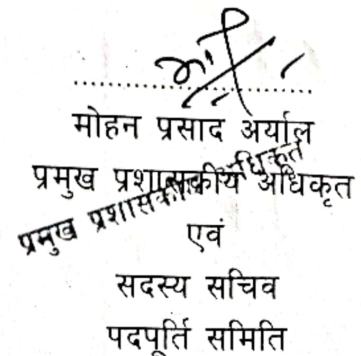 मोहन प्रसाद अर्याल
प्रमुख प्रशासकीय अधिकृत
प्रमुख प्रशासकीय अधिकृत
एवं
सदस्य सचिव
पदपूर्ति समिति